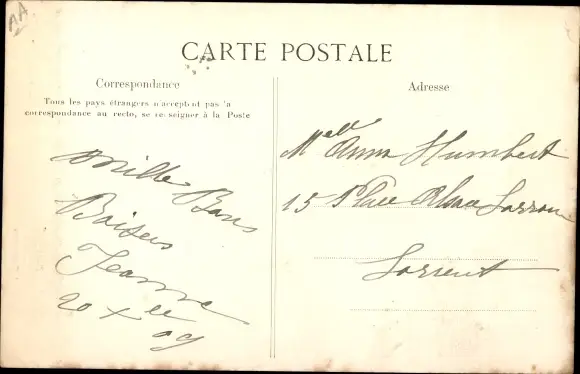 AA
CARTE POSTALE
Correspondance
Tous les pays étrangers n'acceptent pas la
correspondance au recto, se renseigner à la Poste
Mille Bons
Baisers
Jeanne
20 Xe 09
Adresse
Melle Anna Humbert
15 Place Alsace Lorraine
Lorient